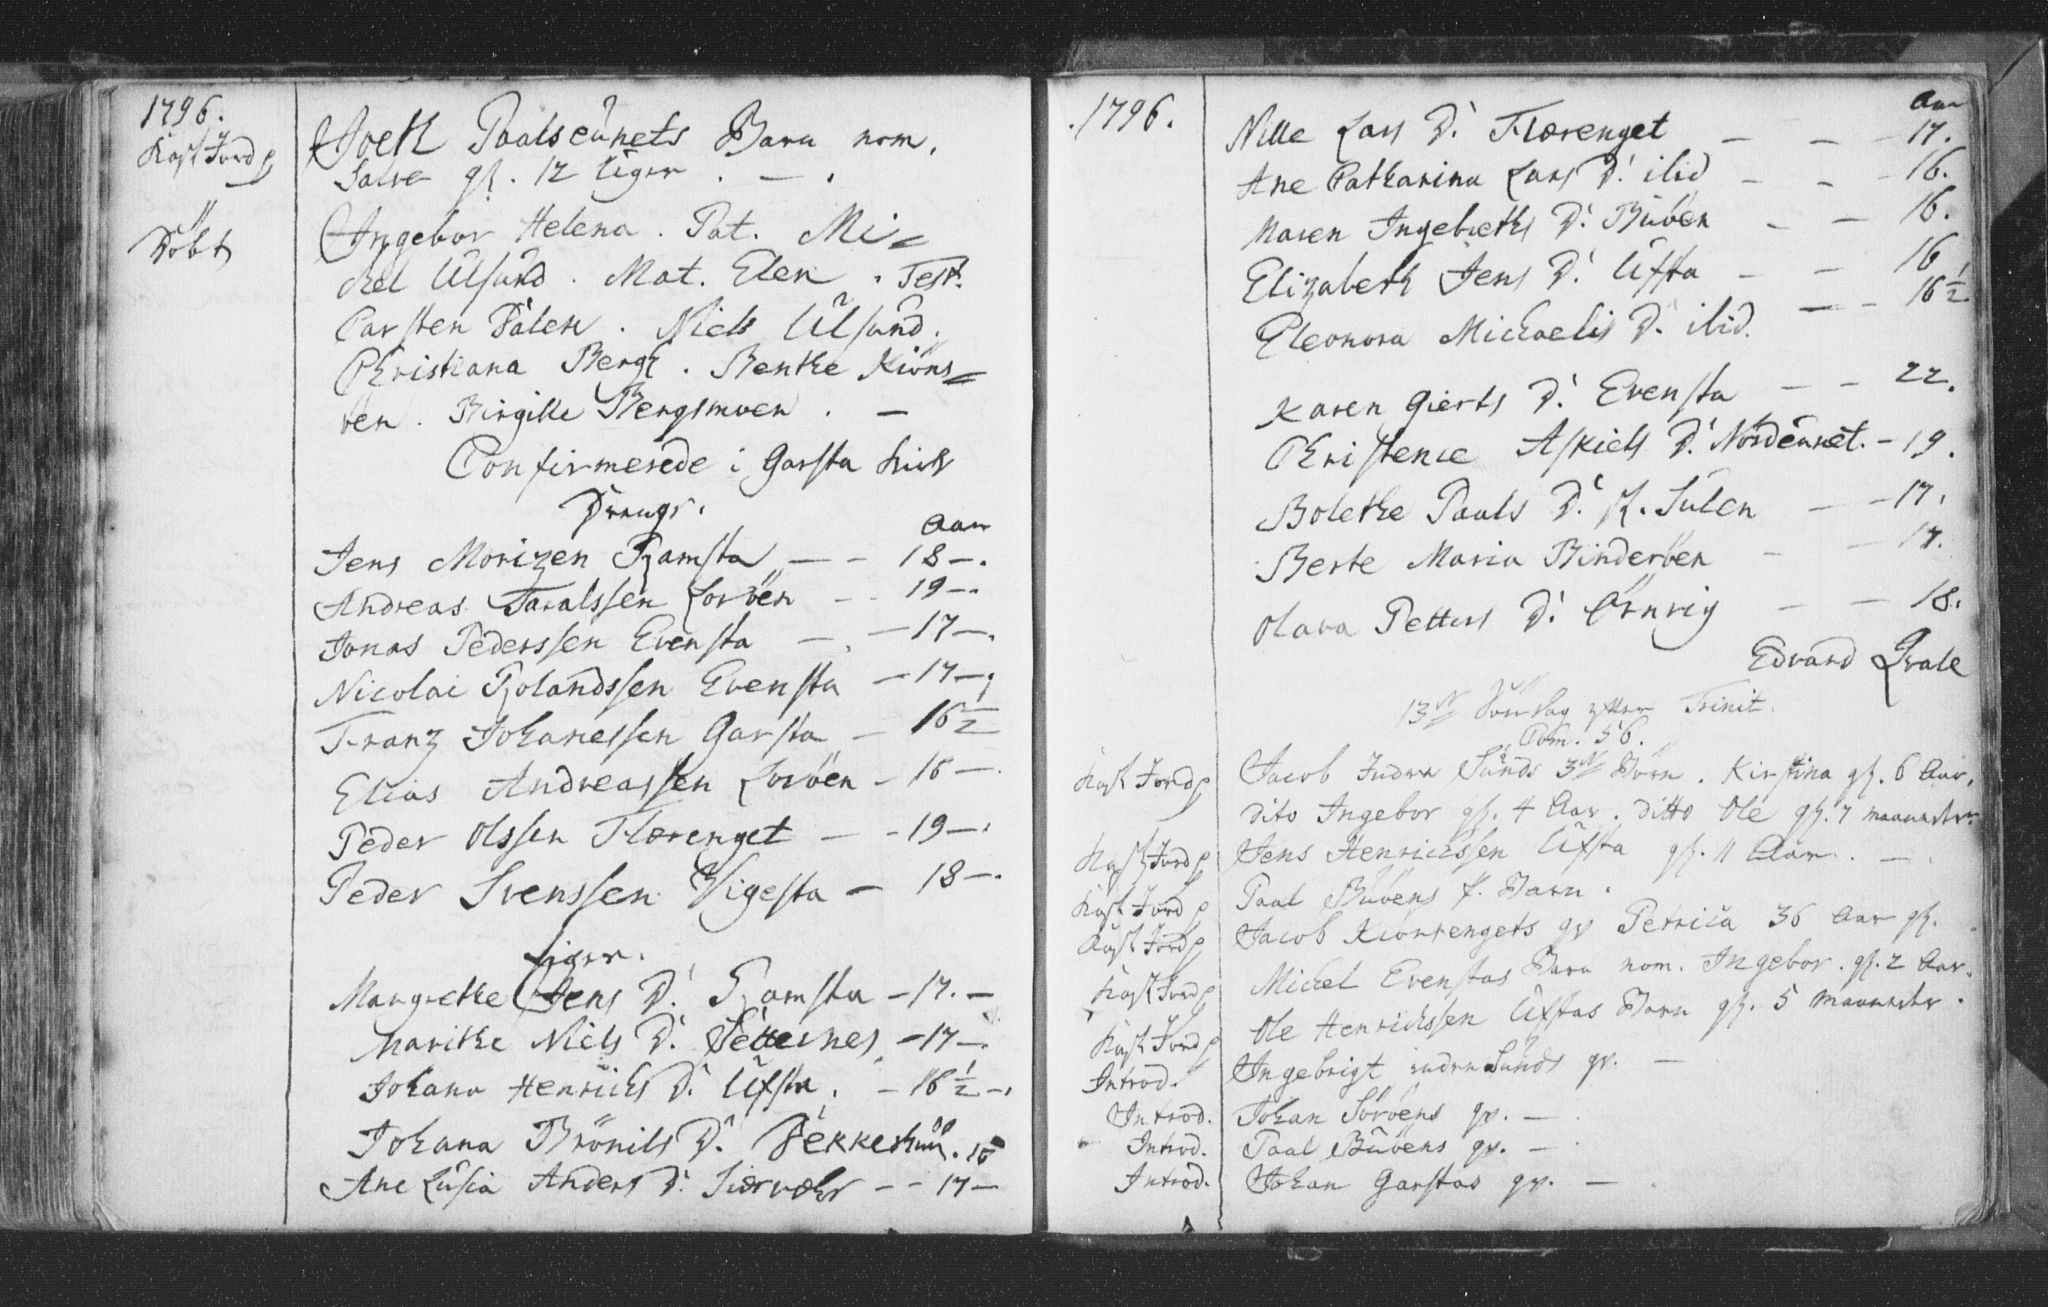 1796.
Kast Jord p Joeth Paalseünets Barn nom.
Salve gl. 12 Uger . — .
Döbt Ingebor Helena . Pat. Mi=
chel Ulsund . Mat. Elen . Test.
Carsten Dalen . Niels Ulsund.
Christiana Bergh . Benthe Kiöns=
ven . Birgitte Bergsmoen . —
Confirmerede i Garsta Kirk
Drenge. Aar
Jens Morizen Ramsta — - 18 —.
Andreas Taralssen Loröen - - 19 —.
Jonas Pederssen Evensta — . — 17 —.
Nicolai Rolandssen Evensta — 17 —.
Franz Johanessen Garsta — 16 1/2
Elias Andreassen Loröen - 16 —.
Peder Olssen Flærenget — - 19 —.
Peder Svenssen Vigesta — 18 —.
Piger.
Margrethe Jens D. Ramsta — 17. —
Marithe Niels D. Setternes — 17 —.
Johana Henrichs D. Ufsta . — 16 1/2 —.
Johana Brönils D.
Ane Lusia Anders D. - - 17 —
.1796. Aar
Nille Lars D. Flærenget — — — 17.
Ane Catharina Lars D. ibid — - - 16.
Maren Ingebreths D. Büöen - — 16.
Elizabeth Jens D. Ufsta — — 16
Eleonora Michaelis D. ibid. — - 16 1/2
Karen Gierts D. Evensta — - 22.
Christence Askiels D. Nordeünet. - 19.
Bolethe Paals D. St. Sulen — - 17.
Berte Maria Binderöen - — 17.
Olava Petters D. Örnvig — — 18.
Edvard Qvale
13de Söndag efter Trinit.
Kast Jord p Jacob Indre Sunds 3de Börn . Kirstina gl. 6 Aar,
dito Ingebor gl. 4 Aar . ditto Ole gl. 7 maaneder
Kast Jord p Jens Henrichssen Ufsta gl. 11 Aar . —
Kast Jord p Paal Büöens f. Barn .
Kast Jord p Jacob Kiörsengets qv Petrica 36 Aar gl.
Kast Jord p Michel Evenstas Barn nom. Ingebor . gl. 2 Aar.
Kast Jord p Ole Henrichssen Ufstas Barn gl. 5 maaneder .
Introd. Ingebrigt indre Sunds qv. —
Introd. Johan Söröens qv. —
Introd. Paal Büöens qv. —
Introd. Johan Garstas qv. —